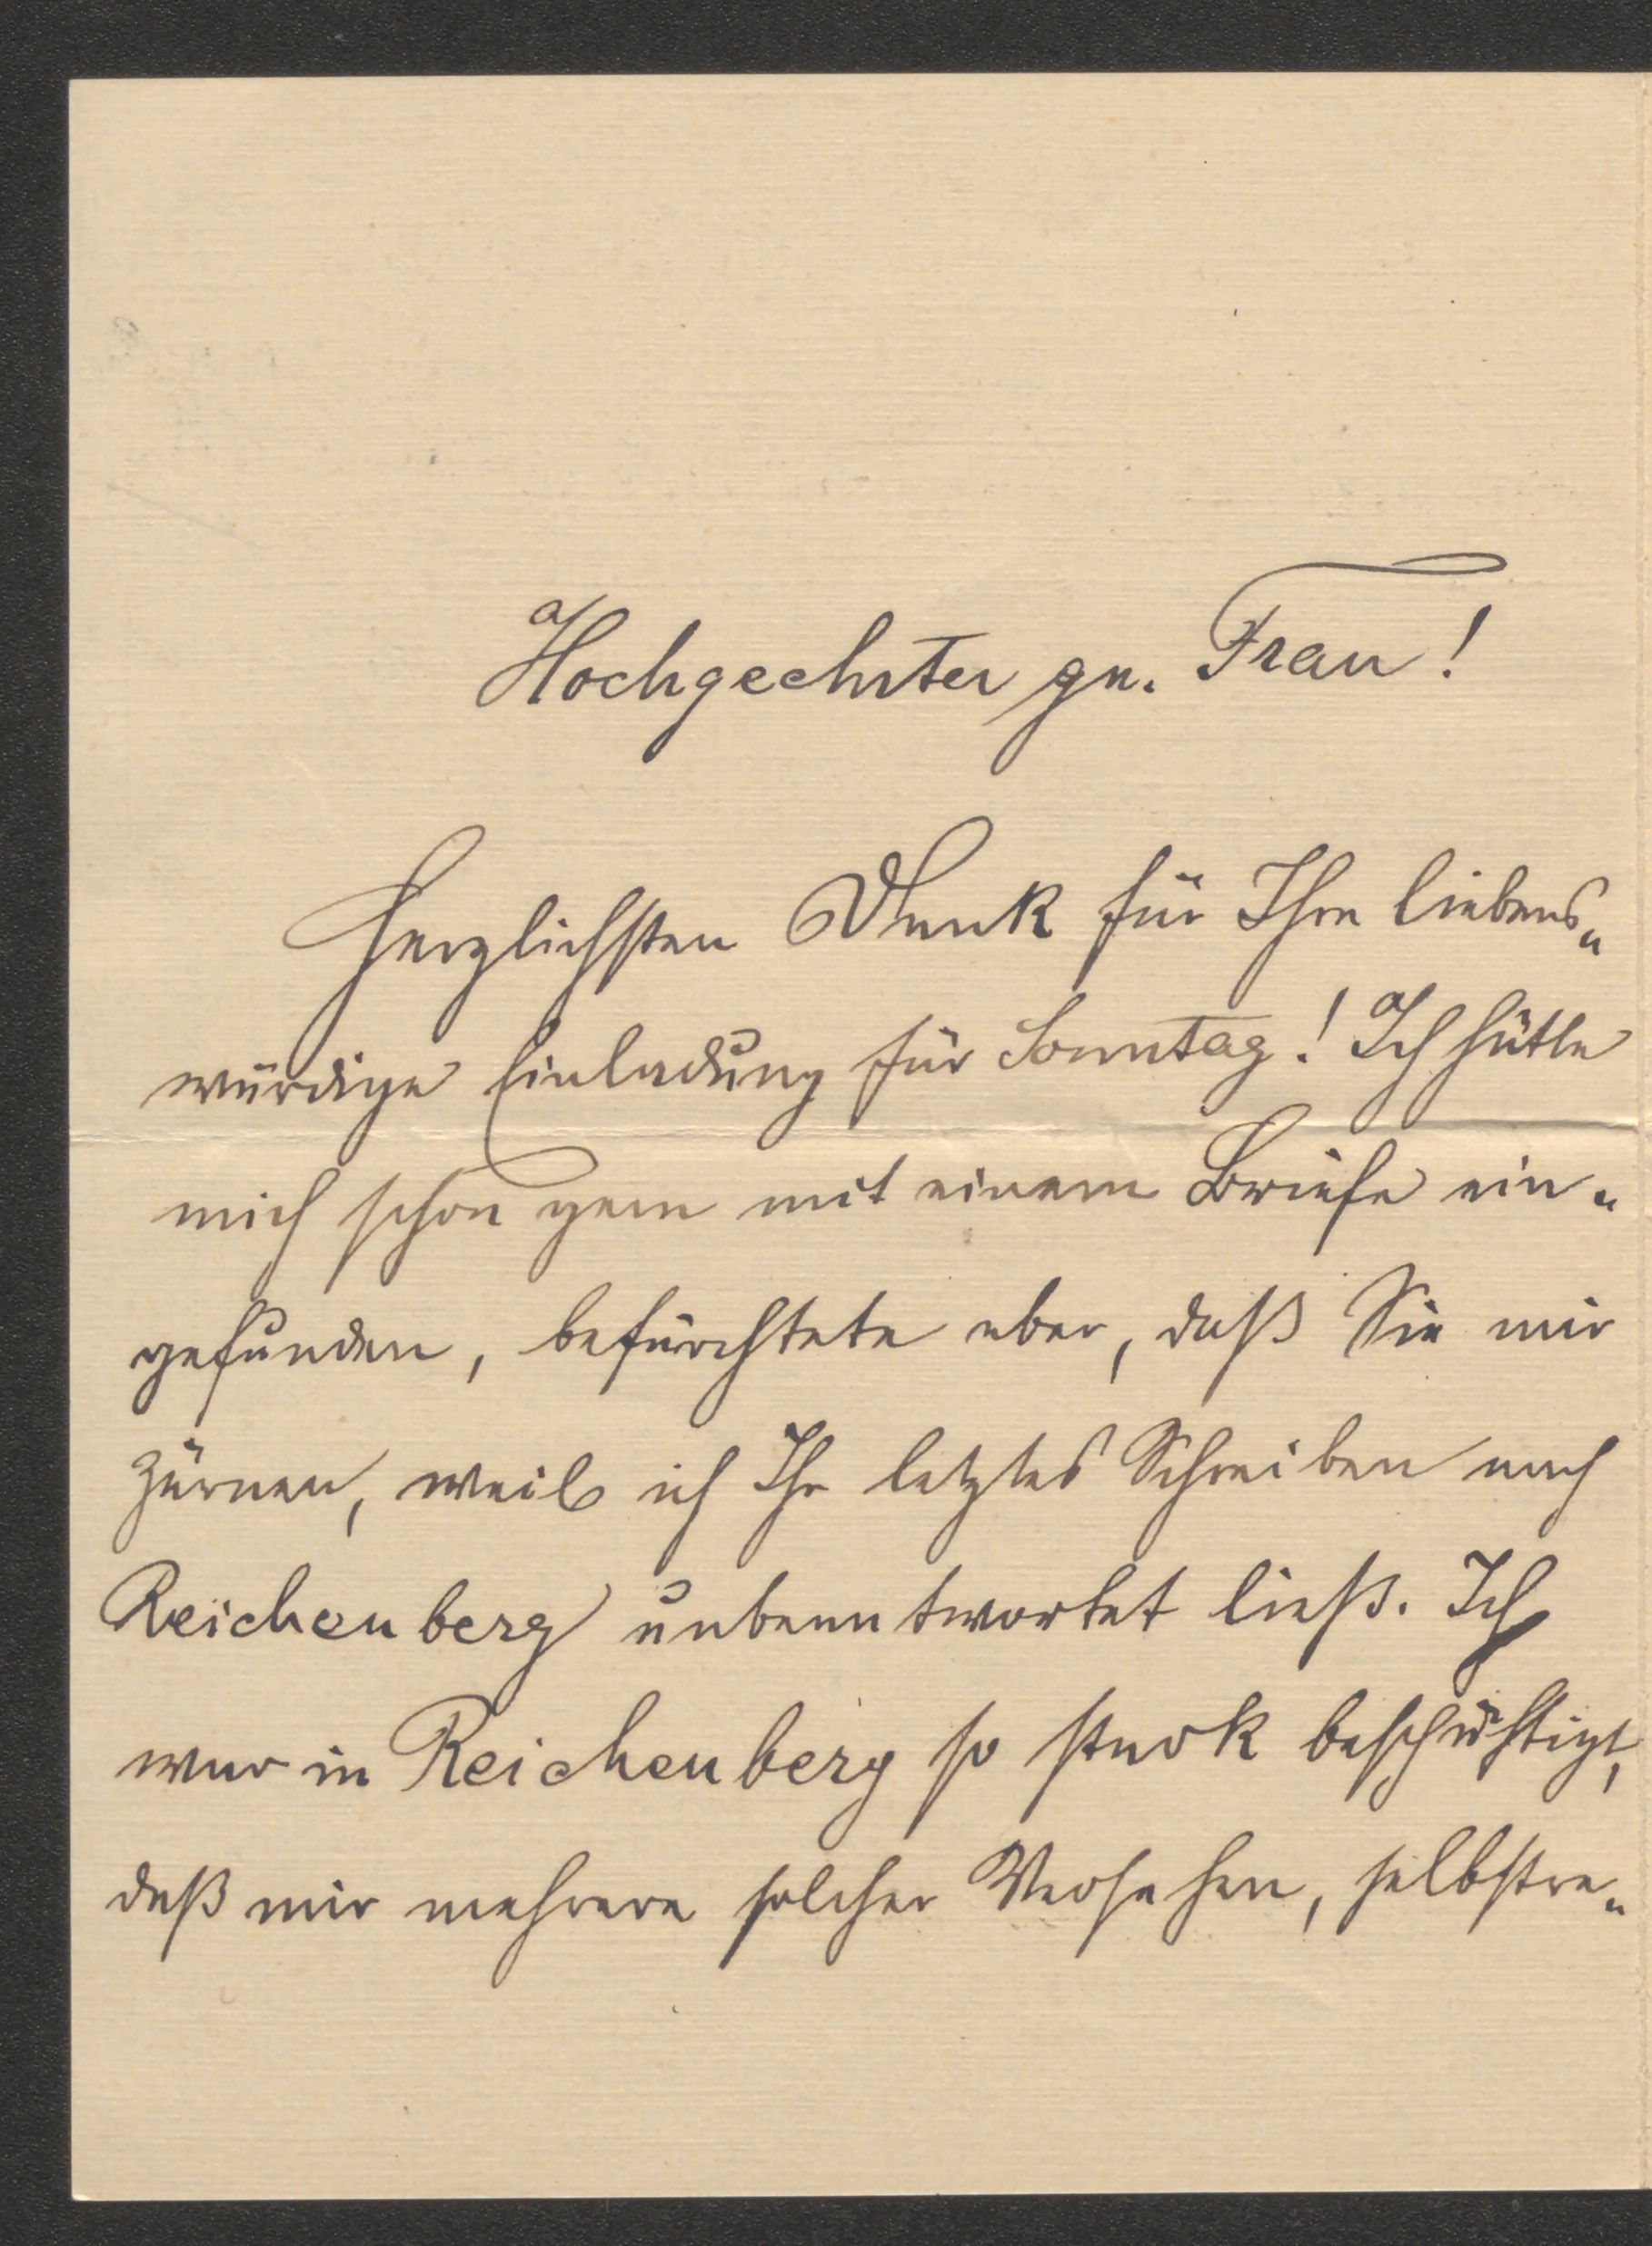 Hochgeehrter gn. Frau!
Herzlichsten Dank für Ihre liebens„
würdige Einladung für Sonntag! Ich hätte
mich schon gern mit einem Briefe ein„
gefunden, befürchtete aber, daß Sie mir
zürnen, weil ich Ihr letztes Schreiben nach
Reichenberg unbeantwortet ließ. Ich
war in Reichenberg so stark beschäftigt,
daß mir mehrere solcher Versehen, selbstre„